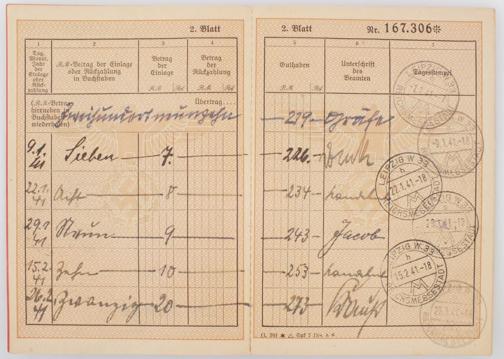 2. Blatt
2. Blatt Nr. 167.306*
1 2 3 4 5 6 7
Tag, Monat, Jahr der Einlage oder Rückzahlung
R.M-Betrag der Einlage oder Rückzahlung in Buchstaben
Betrag der Einlage
Betrag der Rückzahlung
Guthaben
Unterschrift des Beamten
Tagesstempel
R.M Rpf R.M Rpf R.M Rpf
(R.M-Betrag hierneben in Buchstaben wiederholen) Übertrag:
Zweihundertneunzehn 219 Gräfe
9.1. 41 Sieben 7. 226.
22.1 41 Acht 8 234
29.1 41 Neun 9 243 Jacob
15.2. 41 Zehn 10 253
26.2. 41 Zwanzig 20 273
LEIPZIG W 33
REICHSMESSESTADT
-9.1.41-18
LEIPZIG W 33
h
22.1.41-18
REICHSMESSESTADT
LEIPZIG W 33
h
15.2.41-18
REICHSMESSESTADT